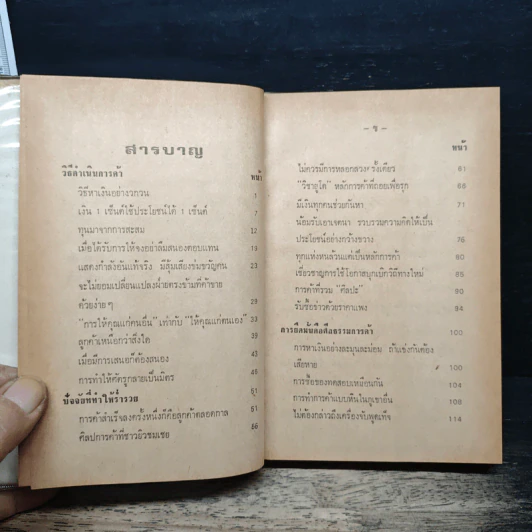 สารบาญ
หน้า
วิธีดำเนินการค้า
วิธีหาเงินอย่างวกวน 1
เงิน 1 เซ็นต์ใช้ประโยชน์ได้ 1 เซ็นต์ 7
ทุนมาจากการสะสม 12
เมื่อได้รับการให้จงอย่าลืมสนองตอบแทน 19
แสดงกำลังอันแท้จริง มีสุ้มเสียงข่มขวัญคน 23
จะไม่ยอมเปลี่ยนแปลงฝ่ายตรงข้ามที่ค้าขาย
ด้วยง่าย ๆ 29
"การให้คุณแก่คนอื่น" เท่ากับ "ให้คุณแก่ตนเอง" 33
ลูกค้าเหนือกว่าสิ่งใด 39
เมื่อมีการเสนอก็ต้องสนอง 43
การทำให้ศัตรูกลายเป็นมิตร 46
ปัจจัยที่ทำให้ร่ำรวย 51
การค้าสำเร็จลงครั้งหนึ่งก็คือลูกค้าตลอดกาล 51
ศิลปการค้าที่ชาวยิวชมเชย 56
– ข –
หน้า
ไม่ควรมีการหลอกลวงครั้งเดียว 61
"วิชายูโด" หลักการค้าที่ถอยเพื่อรุก 68
มีเงินทุกคนช่วยกันหา 71
น้อมรับเอาเจตนา รวบรวมความคิดให้เป็น
ประโยชน์อย่างกว้างขวาง 76
ทุกแห่งหนล้วนแต่เป็นหลักการค้า 81
เชี่ยวชาญการใช้โอกาสบุกเบิกวิถีทางใหม่ 85
การค้าที่รวม "ศิลปะ" 90
รับซื้อข่าวด้วยราคาแพง 94
การยึดมั่นถือศีลธรรมการค้า 100
การหาเงินอย่างละมุนละม่อม ถ้าแข่งกันต้อง
เสียหาย 100
การซื้อของทดสอบเหมือนกัน 104
การทำการค้าแบบหินในภูเขาอื่น 108
ไม่ต้องกล่าวถึงเครื่องจับพูดเท็จ 114